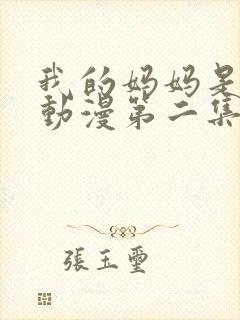 我的妈妈是
動漫第二集
張玉璽